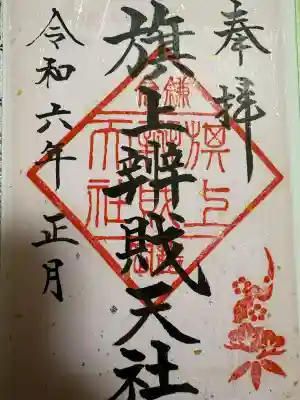 奉拝
旗上辨戝天社
令和六年 正月
鎌倉
旗上
辨財
天社